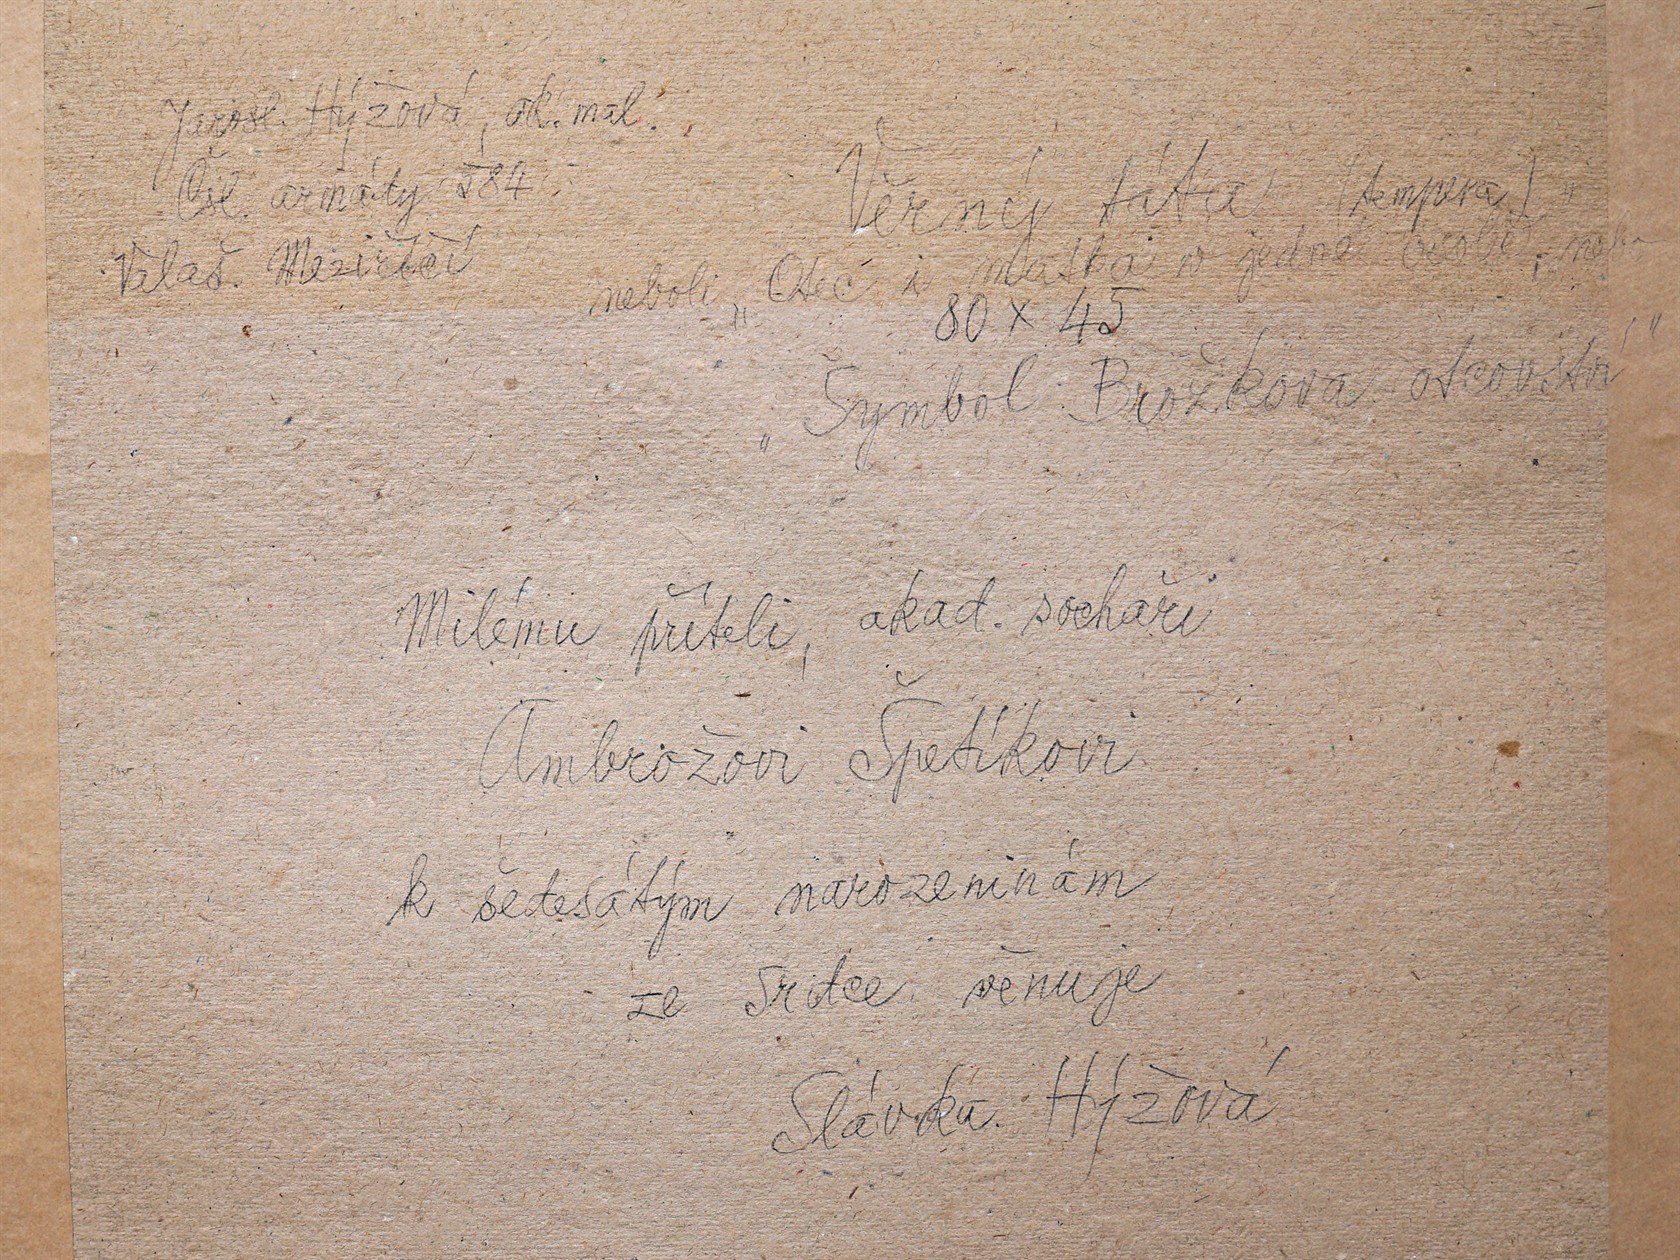 Jarosl. Hýžová, ak. mal.
Čsl. armády 584
Valaš. Meziříčí
Věrný táta (tempera)
neboli „Otec i matka v jedné osobě,
80 x 45
„Symbol Brožkova otcovství“
Milému příteli, akad. sochaři
Ambrožovi Špetíkovi
k šedesátým narozeninám
ze srdce věnuje
Slávka Hýžová